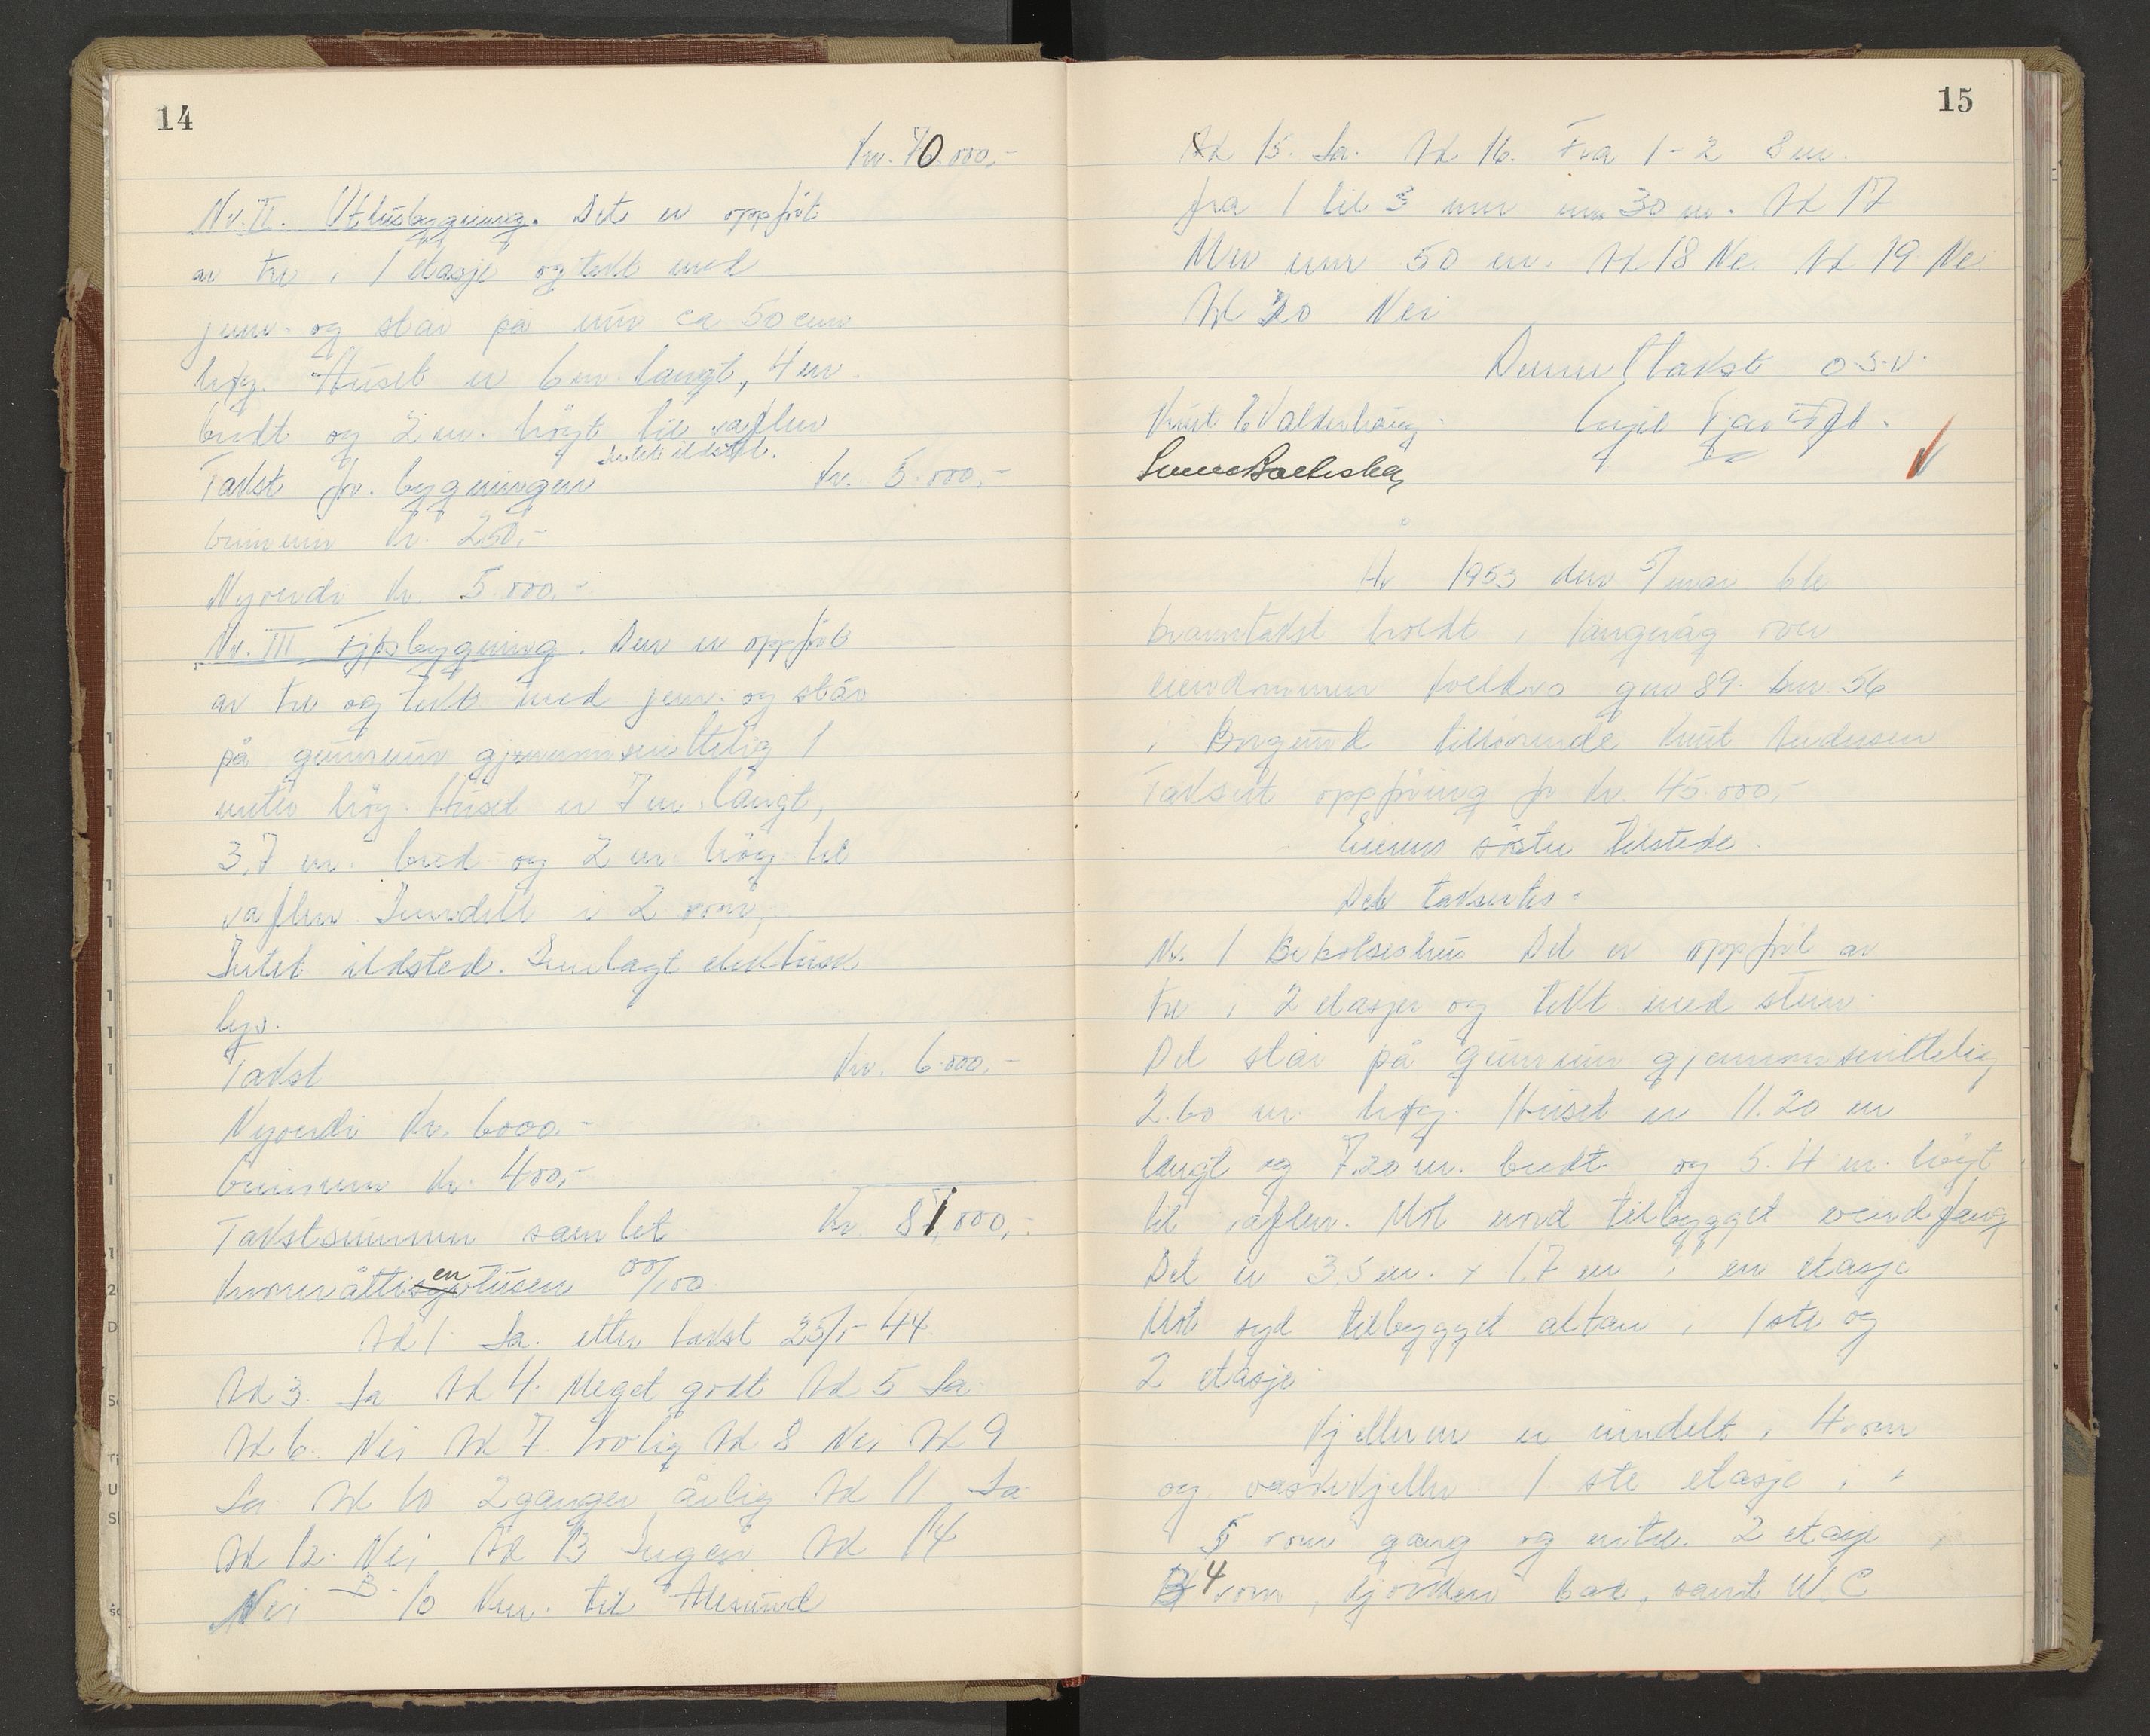 14
Kr. 70.000,-
Nr. II. Uthusbygning. Det er oppført
av tre i 1 etasje og tekt med
jern. og står på mur ca 50 cm
høg. Huset er 6 m. langt, 4 m
bredt og 2 m. høgt til raften
Intet ildsted.
Takst for bygningen Kr. 5.000,-
brinmur Kr. 250,-
Nyverdi Kr. 5.000,-
Nr. III Fjøsbygning. Den er oppført
av tre og tekt med jern. og står
på grunnmur gjennomsnittelig 1
meter høg. Huset er 7 m. langt,
3,7 m. bred og 2 m høg til
raften. Inndelt i 2 rom,
Intet ildsted. Innlagt elektrisk
lys.
Takst Kr. 6.000,-
Nyverdi Kr. 6000,-
brinmur Kr. 400,-
Takstsummen samlet Kr. 81,000,-
Kroneråttientusen 00/100
Ad 1. Ja. etter takst 25/1-44
Ad 3. Ja Ad 4. Meget godt Ad 5 Ja
Ad 6. Nei Ad 7. rolig Ad 8 Nei Ad 9
Ja Ad 10 2 ganger årlig Ad 11 Ja
Ad 12. Nei Ad 13 Ingen Ad 14
Nei 10 Km. til Ålesund
15
Ad 15. Ja. Ad 16. Fra 1-2 8 m.
fra 1 til 3 mer enn 30 m. Ad 17
Mer enn 50 m. Ad 18 Nei Ad 19 Nei
Ad 20 Nei
Denne takst o.s.v.
Knut E Valderhaug
År 1953 den 5/mai ble
branntakst holdt i Langevåg over
eiendommen gnr 89. bnr. 56
i Borgund tilhørende Knut Andersen
Taksert oppføring for Kr. 45.000,-
Eierens søster tilstede.
Det taksertes.
Nr. 1 Beboelseshus Det er oppført av
tre i 2 etasjer og tekt med stein.
Det står på grunnmur gjennomsnittelig
2.60 m høg. Huset er 11.20 m
langt og 7.20 m. bredt og 5.4 m. høgt
til raften. Mot nord tilbygget vindfang
Det er 3.5 m. x 1.7 m i en etasje
Mot syd tilbygget altan i 1ste og
2 etasje
Kjelleren er inndelt i 4 rom
og vaskekjeller 1 ste etasje i
5 rom gang og entre. 2 etasje i
4 rom, kjøkken bad, samt W.C